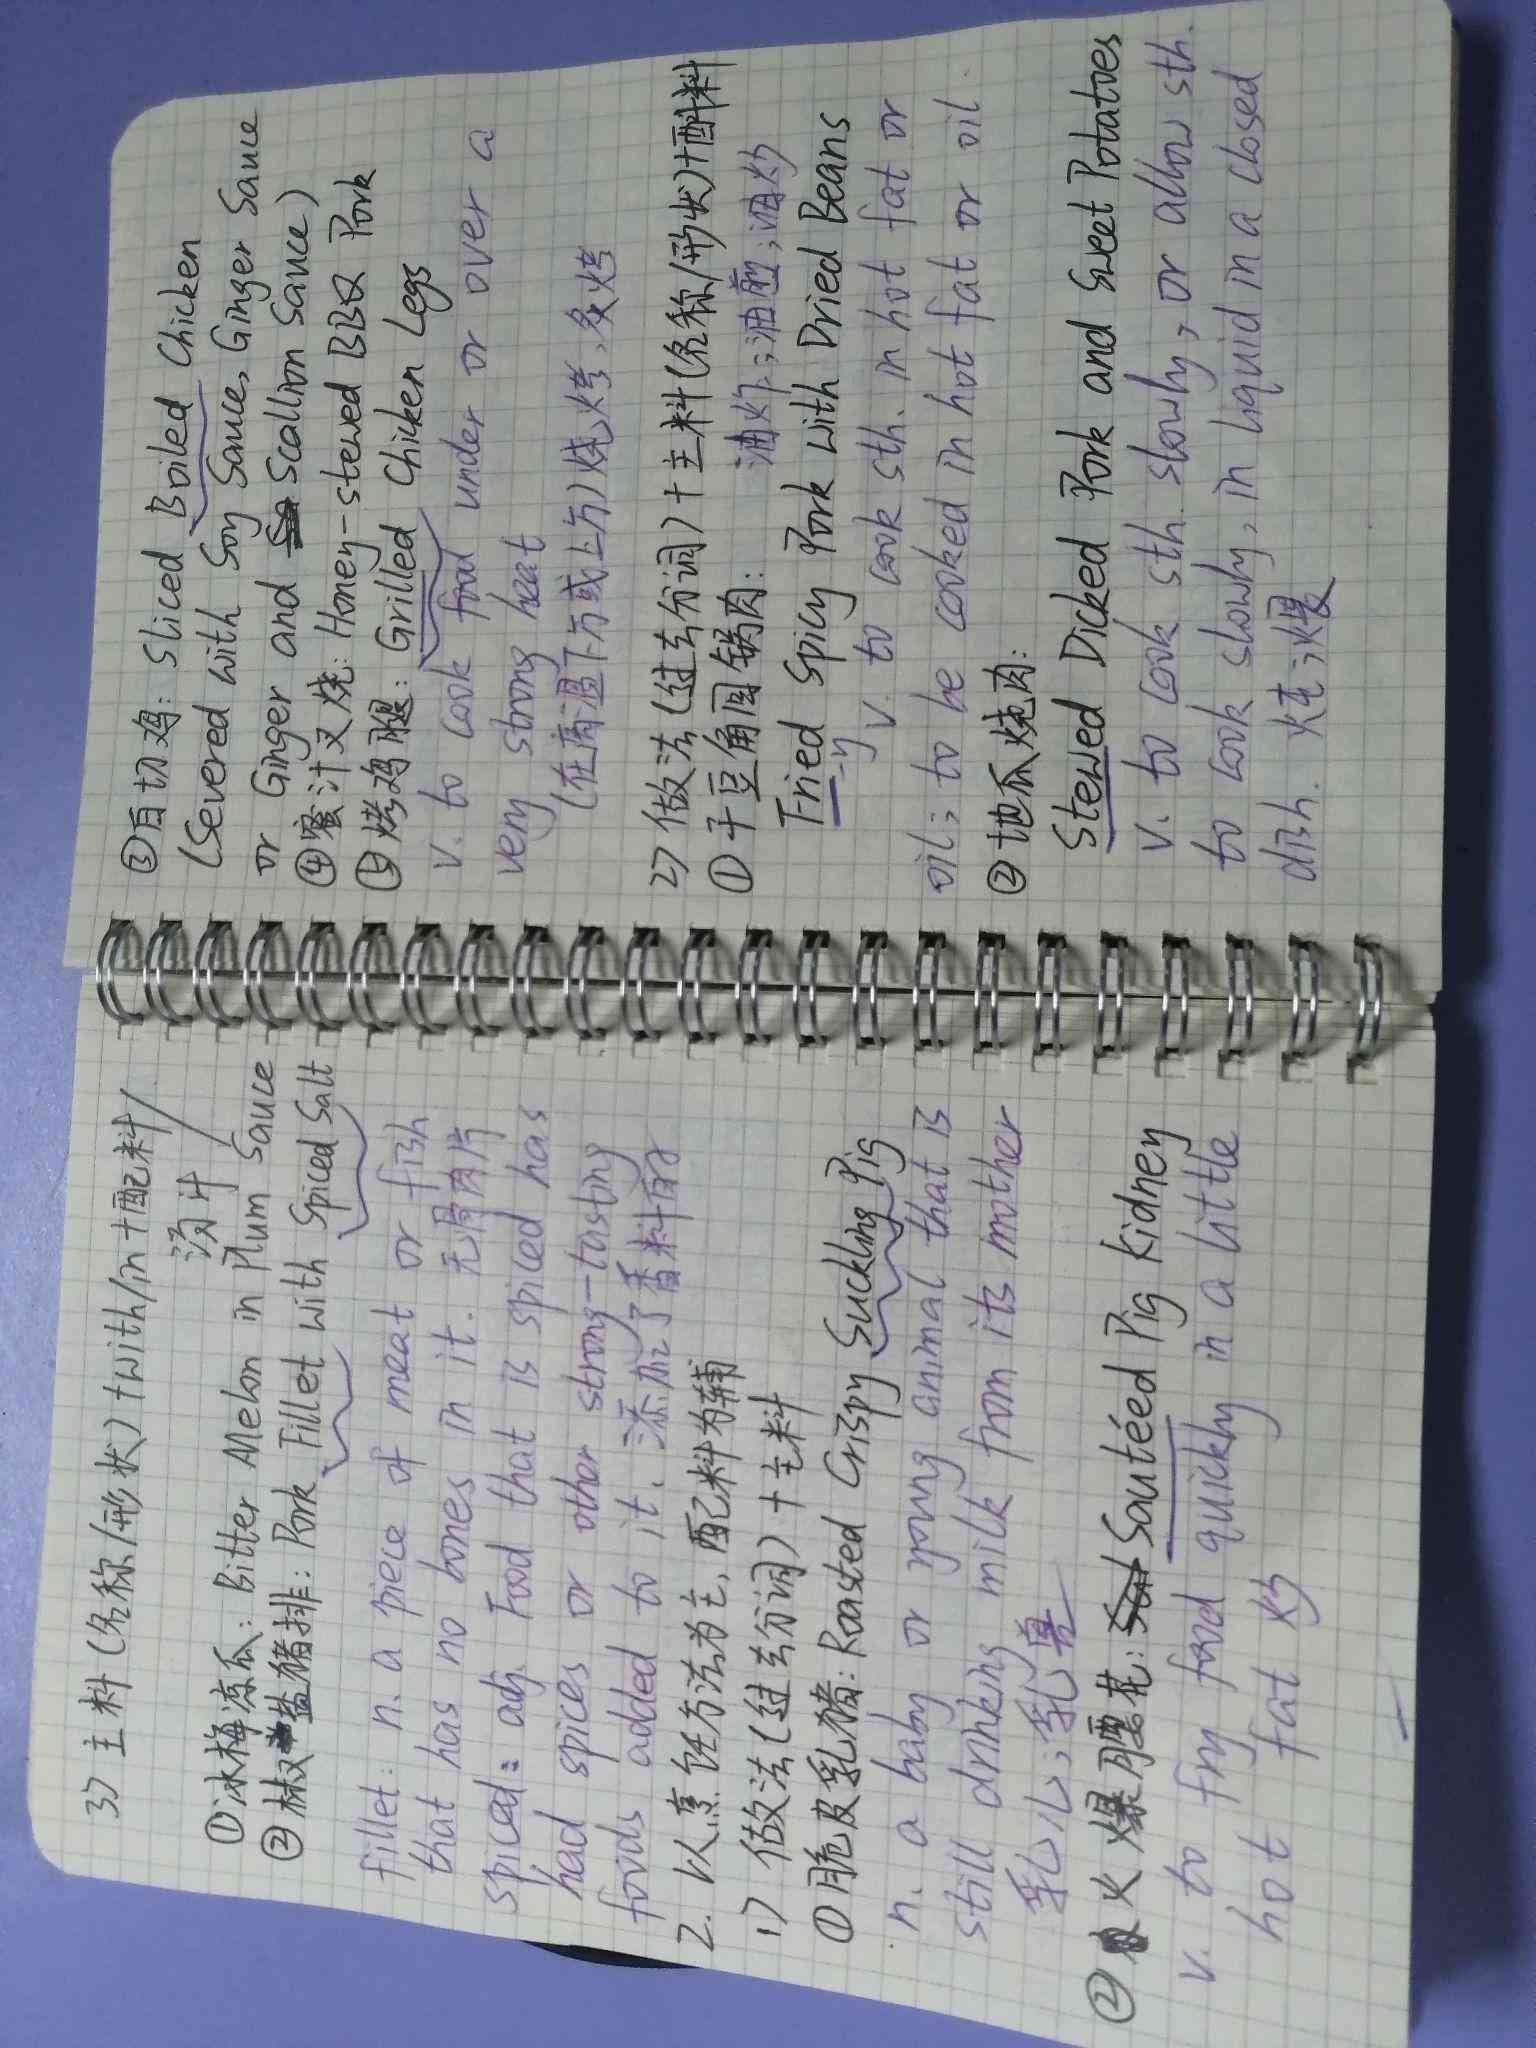 3) 主料(名称/形状)+with/in+配料/
汤汁
①冰梅凉瓜: Bitter Melon in Plum Sauce
②椒盐猪排: Pork Fillet with Spiced Salt
fillet: n. a piece of meat or fish
that has no bones in it. 无骨肉片
spiced: adj. Food that is spiced has
had spices or other strong-tasting
foods added to it. 添加了香料的
2. 以烹饪方法为主,配料为辅
1) 做法(过去分词)+主料
①脆皮乳猪: Roasted Crispy Suckling Pig
n. a baby or young animal that is
still drinking milk from its mother
乳儿;乳兽
②火爆腰花: Sautéed Pig Kidney
v. to fry food quickly in a little
hot fat 炒
③白切鸡: Sliced Boiled Chicken
(Severed with Soy Sauce, Ginger Sauce
or Ginger and Scallion Sauce)
④蜜汁叉烧: Honey-stewed BBQ Pork
⑤烤鸡腿: Grilled Chicken Legs
v. to cook food under or over a
very strong heat
(在高温下方或上方)烧烤,炙烤
2) 做法(过去分词)+主料(名称/形状)+配料
①干豆角回锅肉: 油炸;油煎;油炒
Fried Spicy Pork with Dried Beans
-y v. to cook sth. in hot fat or
oil; to be cooked in hot fat or oil.
②地瓜烧肉:
Stewed Dicked Pork and Sweet Potatoes
v. to cook sth. slowly, or allow sth.
to cook slowly, in liquid in a closed
dish. 炖;煨